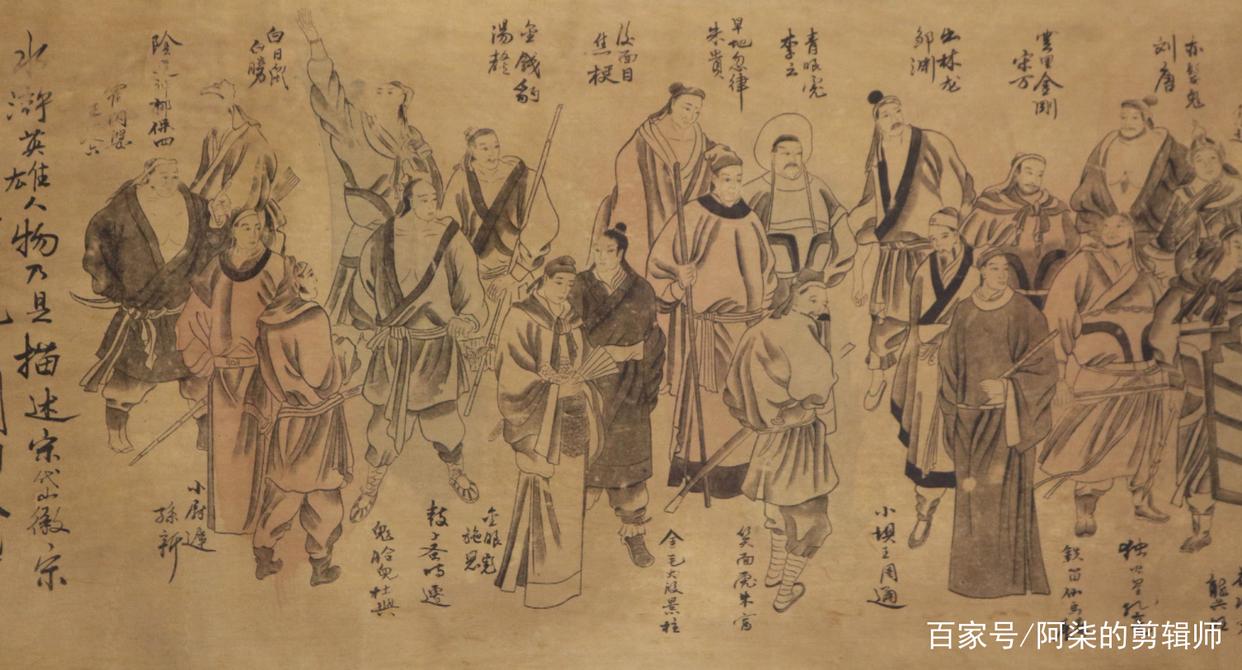 赤髮鬼
刘唐
雲里金剛
宋万
出林龙
邹渊
青眼虎
李云
旱地忽律
朱貴
没面目
焦梃
金钱豹
湯隆
白日鼠
白勝
險道神郁保四
独火星孔亮
鉄笛仙马麟
小坝王周通
笑面虎朱富
金毛犬段景柱
金眼彪
施恩
鼓上蚤時遷
鬼脸兒杜興
小尉遲
孫新
水滸英雄人物乃是描述宋代山徽宗
百家号/阿柒的剪辑师